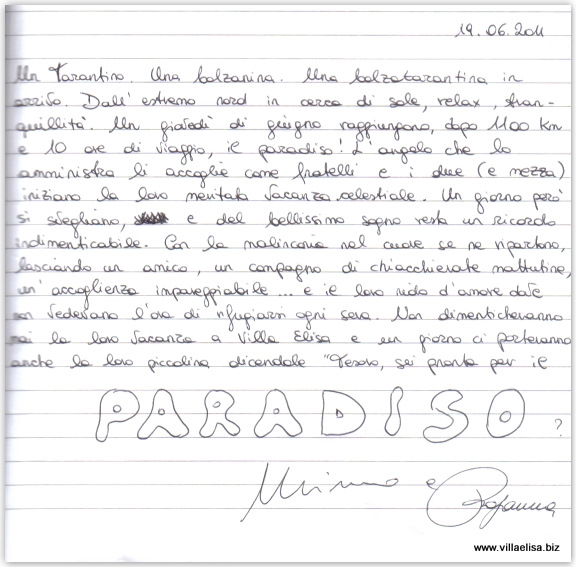 19.06.2011
Un Tarantino. Una bolzanina. Una bolzotarantina in
arrivo. Dall'estremo nord in cerca di sole, relax, tran-
quillità. Un giovedì di giugno raggiungono, dopo 1100 km
e 10 ore di viaggio, il paradiso! L'angelo che lo
amministra li accoglie come fratelli e i due (e mezza)
iniziano la loro meritata vacanza celestiale. Un giorno però
si svegliano, e del bellissimo sogno resta un ricordo
indimenticabile. Con la malinconia nel cuore se ne ripartono,
lasciando un amico, un compagno di chiacchierate mattutine,
un'accoglienza impareggiabile... e il loro nido d'amore dove
non vedevano l'ora di rifugiarsi ogni sera. Non dimenticheranno
mai la loro vacanza a Villa Elisa e un giorno ci porteranno
anche la loro piccolina dicendole "Tesoro, sei pronta per il
PARADISO?
Mimmo e Rosanna
www.villaelisa.biz